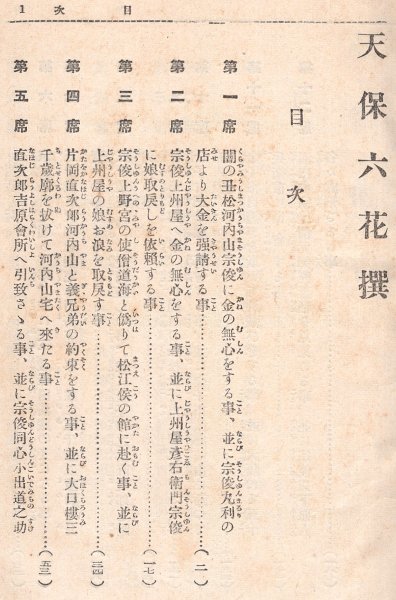 目次 1
天保六花撰
目次
第一席 闇の丑松河內山宗俊に金の無心をする事、並に宗俊丸利の
店より大金を強請する事………(一)
第二席 宗俊上州屋へ金の無心をする事、並に上州屋彥右衞門宗俊
に娘取戾しを依賴する事………(一七)
第三席 宗俊上野宮の使僧道海と僞りて松江侯の館に赴く事、並に
上州屋の娘お浪を取戾す事………(三四)
第四席 片岡直次郞河內山と義兄弟の約束をする事、並に大口樓三
千歲廓を拔けて河內山宅へ來たる事………(五三)
第五席 直次郞吉原會所へ引致さゝる事、並に宗俊同心小出道之助